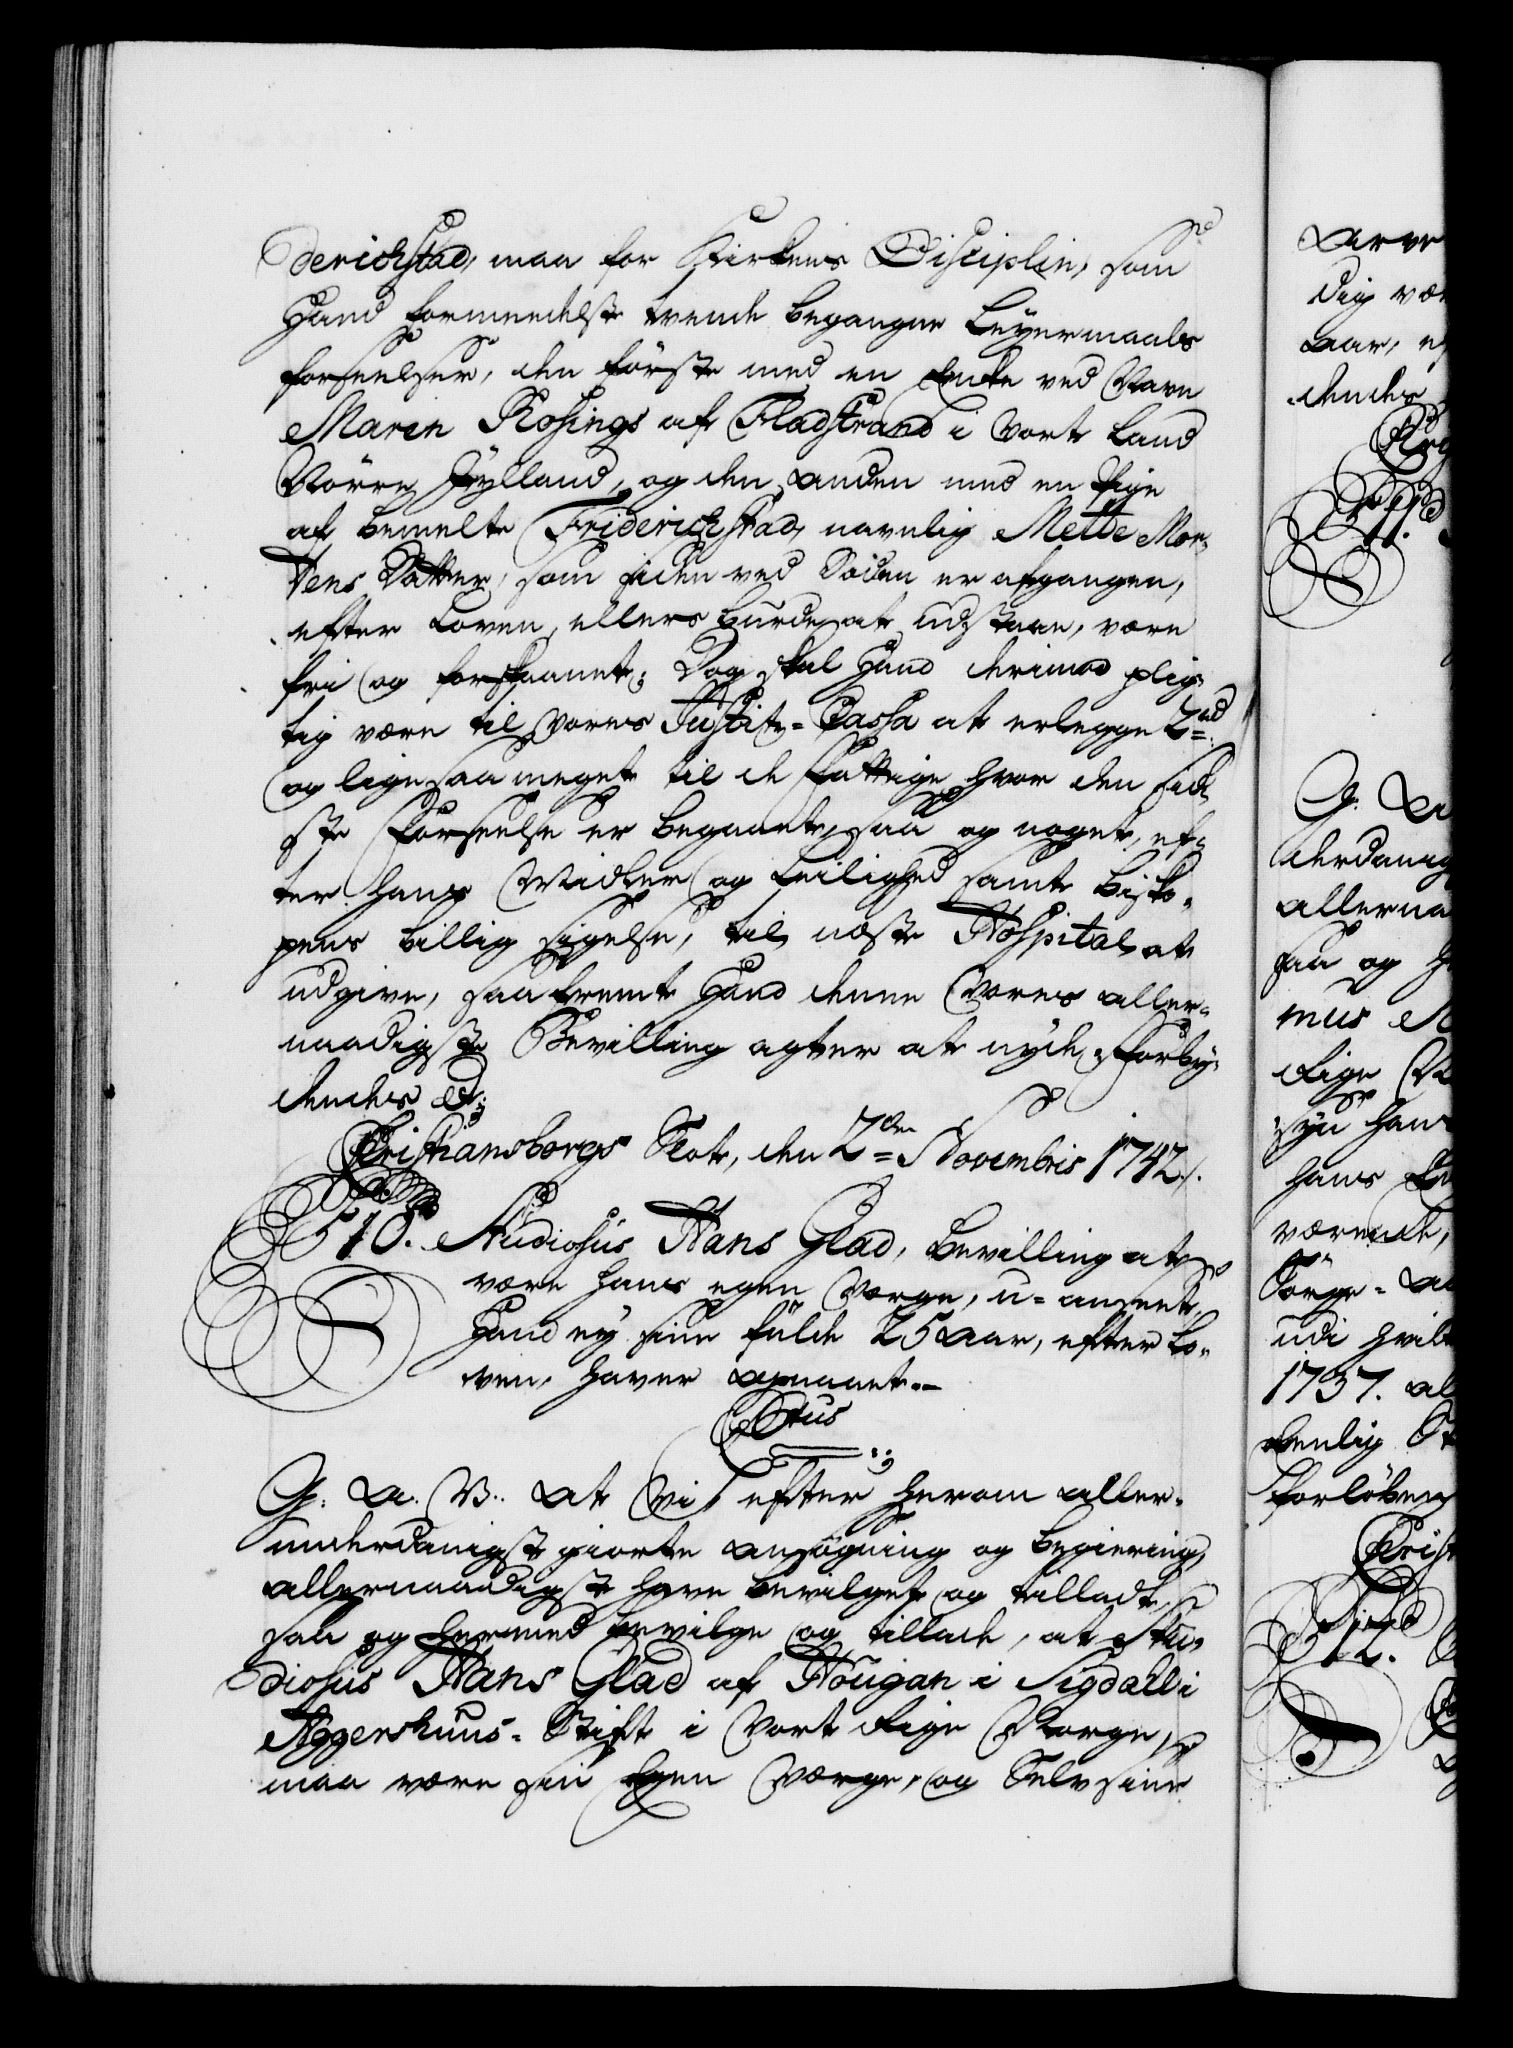 derichstad, maa for Kirkens Disciplin, som
Hand formedelst tvende begangne Leyermaals
forseelser, den første med en Encke ved Navn
Maren Rosings af Fladstrand i Vort Land
Nörre Jylland, og den anden med en Pige
af bemelte Friderichstad, navnlig Mette Mor-
tens Datter, som siden ved Döden er afgangen,
efter Loven, ellers burde at udstaae, være
fri og forskaanet; Dog skal Hand derimod plig-
tig være til Vores Justits-Cassa at erlegge 2 rd
og lige saa meget til de Fattige hvor den sid-
ste Forseelse er begaaet, saa og noget, ef-
ter hans Midler og Leilighed samt Bisko-
pens billig sigelse, til næste Hospital at
udgive, saafremt Hand denne Vores aller-
naadigste Bevilling agter at nyde, Forby-
dendes &;
Christiansborgs Slott, den 2den Novembris 1742./.
510. Studiosus Hans Glad, Bevilling at
være hans egen Værge, u-anseet,
Hand ey sine fulde 25 Aar, efter Lo-
ven, haver opnaaet.-
C Stus
G: A. V: At Vi efter herom aller-
underdanigst giorte ansøgning og begiering
allernaadigst have bevilget og tilladt,
saa og hermed bevilge og tillade, at Stu-
diosus Hans Glad af Hougan i Sigdall i
Aggershuus-Stift i Vort Rige Norge,
maa være sin Egen Værge, og Selv sine
Aarr
dig vær
Aar, ef
dendes
511.
G: A
derdanig
allerna
saa og h
mus M
Rige N
syn hans
hans En
værende,
Sörge-Aa
udi hvilk
1737. al
benlig St
forløben
Christ
512.